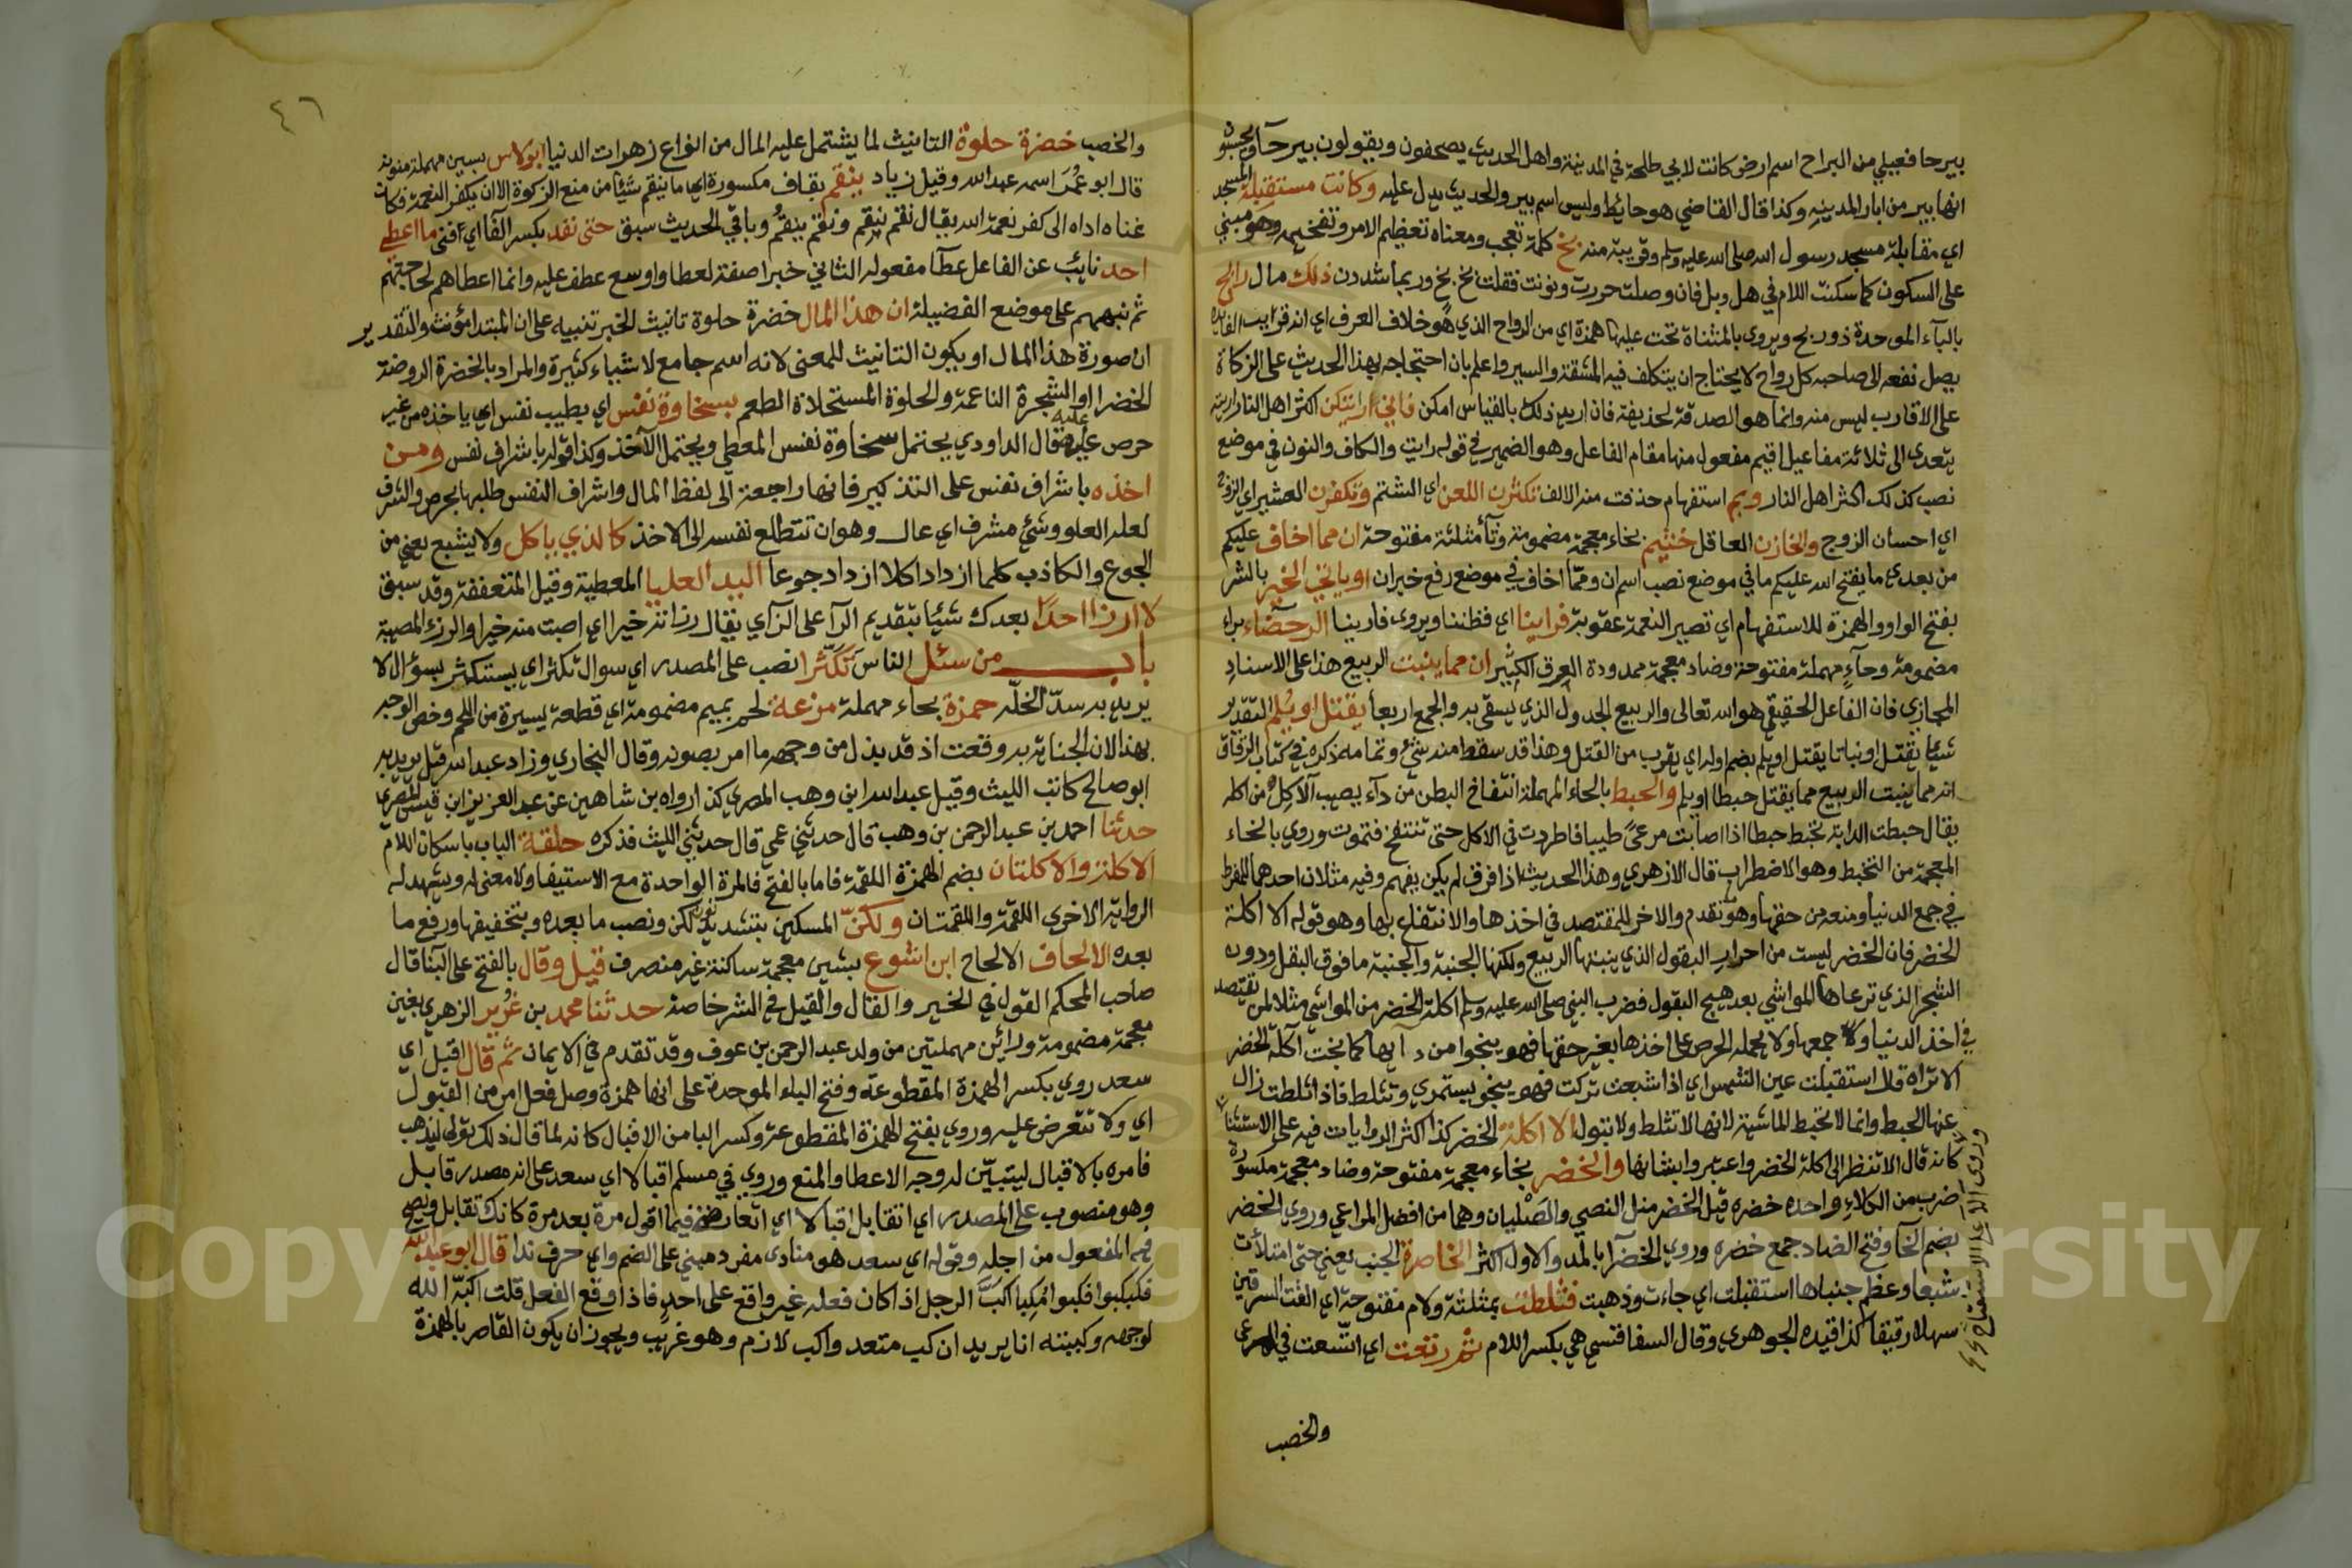 بيرحا فعيلي من البراح اسم ارض كانت لابي طلحة في المدينة واهل الحديث يصحفون ويقولون بيرحآ ويحسبون
انها بير من ابار المدينه وكذا قال القاضي هو حائط وليس اسم بير والحديث يدل عليه وكانت مستقبلة المسجد
اي مقابلة مسجد رسول الله صلى الله عليه وسلم وقريبة منه بخ كلمة تعجب ومعناه تعظيم الامر وتفخيمه وهو مبني
على السكون كما سكنت اللام في هل وبل فان وصلت حررت ونونت فقلت بخ بخ وربما شددن ذلك مال رابح
بالبآء الموحدة ذو ربح ويروى بالمثناة تحت عليها همزة اي من الرواح الذي هو خلاف العرف اي انه قرايب الفايده
يصل نفعه الى صاحبه كل رواح لا يحتاج ان يتكلف فيه المشقة والسير واعلم بان احتجاجه بهذا الحديث على الزكاة
على الاقارب ليس منه وانما هو الصدقة لحذيفة فان اريد ذلك بالقياس امكن فاني اريتكن اكثر اهل النار اريته
يتعدى الى ثلاثة مفاعيل اقيم مفعول منها مقام الفاعل وهو الضمير في قوله رايت والكاف والنون في موضع
نصب كذلك اكثر اهل النار وبم استفهام حذفت منه الالف تكثرن اللعن اي الشتم وتكفرن العشير اي الزوج
اي احسان الزوج والخازن العاقل خثيم بخاء معجمة مضمومة وثآ مثلثة مفتوحة ان مما اخاف عليكم
من بعدي ما يفتح الله عليكم ما في موضع نصب اسم ان ومما اخاف في موضع رفع خبر ان او ياتي الخير بالشر
بفتح الواو والهمزة للاستفهام اي تصير النعمة عقوبة فراينا اي فظننا ويروى فارينا الرحضاء براء
مضمومة وحآء مهملة مفتوحة وضاد معجمة ممدودة العرق الكثير ان مما ينبت الربيع هذا على الاسناد
المجازي فان الفاعل الحقيقي هو الله تعالى والربيع الجدول الذي يسقى به والجمع اربعا يقتل او يلم التقدير
شيئا يقتل او نباتا يقتل او يلم بضم اوله اي يقرب من القتل وهذا قد سقط منه شئ وتمامه ذكره في كتاب الرقاق
انه مما ينبت الربيع مما يقتل حبطا او يلم والحبط بالحاء المهملة انتفاخ البطن من دآء يصيب الآكل من اكله
يقال حبطت الدابة تحبط حبطا اذا اصابت مرعى طيبا فاطردت في الاكل حتى تنتفخ فتموت وروي بالخاء
المعجمة من التخبط وهو الاضطراب قال الازهري وهذا الحديث اذا فرق لم يكن يفهم وفيه مثلان احدهما للمفرط
في جمع الدنيا ومنعه من حقها وهو تقدم والاخر للمقتصد في اخذها والانتفاع بها وهو قوله الا اكلة
الخضر فان الخضر ليست من احرار البقول الذي ينبتها الربيع ولكنها الجنبة والجنبة ما فوق البقل ودون
الشجر الذي ترعاها المواشي بعد هيج البقول فضرب النبي صلى الله عليه وسلم اكلة الخضر من المواشي مثلا لمن يقتصد
في اخذ الدنيا ولا جمعها ولا يحمله الحرص على اخذها بغير حقها فهو ينجوا من د ابها كما نجت آكلة الخضر
الا تراه قال استقبلت عين الشمس اي اذا شبعت تركت فهو ينجو يستمري وتثلط فاذا ثلطت زال
عنها الحبط وانما لا تحبط الماشية لانها لا تثلط ولا تبول الا اكلة الخضر كذا اكثر الروايات فيه على الاستثناء
كانه قال الا تنظر الى اكلة الخضر واعتبر وابشانها والخضر بخاء معجمة مفتوحة وضاد معجمة مكسورة
ضرب من الكلاء واحده خضره قيل الخضر مثل النصي والصليان وهما من افضل المراعي وروي الخضر
بضم الخآ وفتح الضاد جمع خضره وروي الخضرآ بالمد والاول اكثر الخاصرة الجنب يعني حتى امتلأت
شبعا وعظم جنباها استقبلت اي جاءت وذهبت فثلطت بمثلثة ولام مفتوحة اي القت السرقين
سهلا رقيقا كذا قيده الجوهري وقال السفاقسي هي بكسر اللام ثم رتعت اي اتسعت في المرعى
وروى الا على الاستفتاح
والخصب
٤٦
والخصب خضرة حلوة التانيث لما يشتمل عليه المال من انواع زهرات الدنيا ابو لاس بسين مهملة منونة
قال ابو عمر اسمه عبد الله وقيل زياد ينقم بقاف مكسورة اي ما ينقم شيئا من منع الزكوة الا ان يكفر النعمة فكان
غناه اداه الى كفر نعمة الله يقال نقم ينقم ونقم ينقم وباقي الحديث سبق حتى نفد بكسر الفآ اي فنى ما اعطي
احد نايب عن الفاعل عطآ مفعوله الثاني خيرا صفة لعطا واوسع عطف عليه وانما اعطاهم لحاجتهم
ثم نبههم على موضع الفضيلة ان هذا المال خضرة حلوة تانيث الخبر تنبيه على ان المبتدا مؤنث والتقدير
ان صورة هذا المال او يكون التانيث للمعنى لانه اسم جامع لاشياء كثيرة والمراد بالخضرة الروضة
الخضرا او الشجرة الناعمة والحلوة المستحلاة الطعم بسخاوة نفس اي بطيب نفس اي ياخذه من غير
حرص عليه قال الداودي يحتمل سخاوة نفس المعطي ويحتمل الآخذ وكذا قوله باشراف نفس ومن
اخذه باشراف نفس على التذكير فانها راجعة الى لفظ المال واشراف النفس طلبها بحرص والشرف
لعله العلو وشئ مشرف اي عال وهو ان تتطلع نفسه الى الاخذ كالذي ياكل ولا يشبع يعني من
الجوع والكاذب كلما ازداد اكلا ازداد جوعا اليد العليا المعطية وقيل المتعففة وقد سبق
لا ارزا احدا بعدك شيئا بتقديم الرآ على الزآي يقال رزاته خيرا اي اصبت منه خيرا والرزء المصيبة
باب من سئل الناس تكثرا نصب على المصدر اي سوال تكثر اي يستكثر بسؤال لا
يريد به سد الخله حمزة بحاء مهملة مزعة لحم بميم مضمومة اي قطعة يسيرة من اللحم وخص الوجه
بهذا لان الجناية به وقعت اذ قد بذل من وجهه ما امر بصونه وقال البخاري وزاد عبد الله قيل يريد به
ابو صالح كاتب الليث وقيل عبد الله ابن وهب المصري كذا رواه بن شاهين عن عبد العزيز ابن قيس المصري
حدثنا احمد بن عبد الرحمن بن وهب قال حدثني عمي قال حدثني الليث فذكره حلقة الباب باسكان اللام
الاكلة والاكلتان بضم الهمزة اللقمة فاما بالفتح فالمرة الواحدة مع الاستيفا ولا معنى له ويشهد له
الرواية الاخرى اللقمة واللقمتان ولكن المسكين بتشديد نون لكن ونصب ما بعده وبتخفيفها ورفع ما
بعده الالحاف الالحاح ابن اشوع بشين معجمة ساكنة غير منصرف قيل وقال بالفتح على البنا قال
صاحب المحكم القول في الخير والقال والقيل في الشر خاصة حدثنا محمد بن غرير الزهري بغين
معجمة مضمومة ورائين مهملتين من ولد عبد الرحمن بن عوف وقد تقدم في الايمان ثم قال اقبل اي
سعد روي بكسر الهمزة المقطوعة وفتح الباء الموحدة على انها همزة وصل فعل امر من القبول
اي ولا تتعرض عليه وروي بفتح الهمزة المقطوعة وكسر البا من الاقبال كانه لما قال ذلك تولى ليذهب
فامره بالاقبال ليتبين له وجه الاعطا والمنع وروي في مسلم اقبالا اي سعد على انه مصدر قابل
وهو منصوب على المصدر اي اتقابل اقبالا اي اتعارض فيما اقول مرة بعد مرة كانك تقابل ويصح
فيه المفعول من اجله وقوله اي سعد هو منادى مفرد مبني على الضم واي حرف ندا قال ابو عبد الله
فكبكبوا فكبوا مكبا اكب الرجل اذا كان فعله غير واقع على احد فاذا وقع الفعل قلت اكبه الله
لوجهه وكببته انا يريد ان كب متعد واكب لازم وهو غريب ويجوز ان يكون القاصر بالهمزة